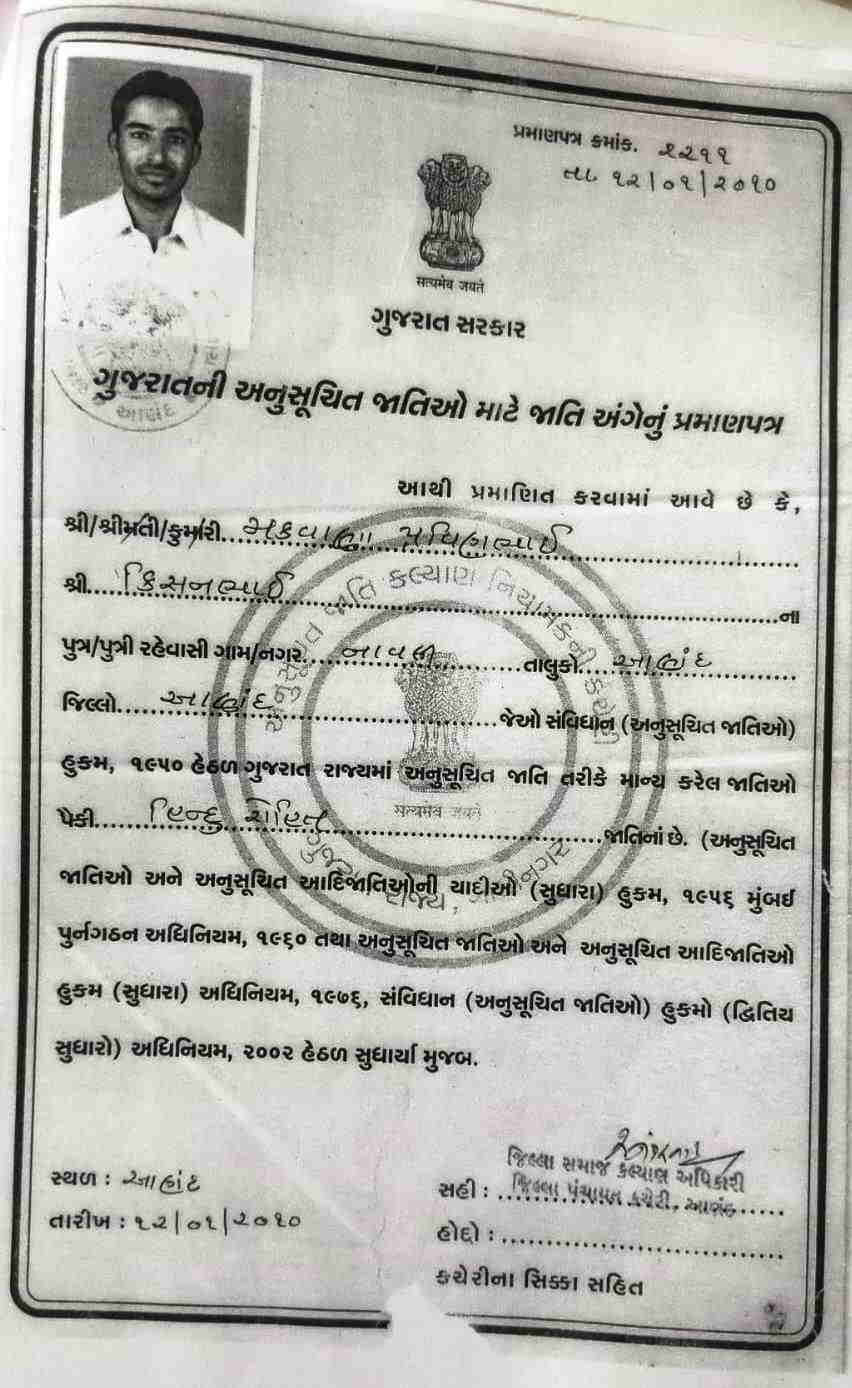 પ્રમાણપત્ર ક્રમાંક. ૨૨૧૧
તા. ૧૨/૦૧/૨૦૧૦
सत्यमेव जयते
ગુજરાત સરકાર
આણંદ
ગુજરાતની અનુસૂચિત જાતિઓ માટે જાતિ અંગેનું પ્રમાણપત્ર
આથી પ્રમાણિત કરવામાં આવે છે કે,
શ્રી/શ્રીમતી/કુમારી..મકવાણા પ્રવિણભાઈ
શ્રી..કિસનભાઈ..ના
પુત્ર/પુત્રી રહેવાસી ગામ/નગર..નાવલી..તાલુકો..આણંદ
જિલ્લો..આણંદ..જેઓ સંવિધાન (અનુસૂચિત જાતિઓ)
હુકમ, ૧૯૫૦ હેઠળ ગુજરાત રાજ્યમાં અનુસૂચિત જાતિ તરીકે માન્ય કરેલ જાતિઓ
પૈકી..હિન્દુ રોહિત..જાતિનાં છે. (અનુસૂચિત
જાતિઓ અને અનુસૂચિત આદિજાતિઓની યાદીઓ (સુધારા) હુકમ, ૧૯૫૬ મુંબઈ
પુર્નગઠન અધિનિયમ, ૧૯૬૦ તથા અનુસૂચિત જાતિઓ અને અનુસૂચિત આદિજાતિઓ
હુકમ (સુધારા) અધિનિયમ, ૧૯૭૬, સંવિધાન (અનુસૂચિત જાતિઓ) હુકમો (દ્વિતિય
સુધારો) અધિનિયમ, ૨૦૦૨ હેઠળ સુધાર્યા મુજબ.
અનુસૂચિત જાતિ કલ્યાણ નિયામકની કચેરી
सत्यमेव जयते
ગુજરાત રાજ્ય, ગાંધીનગર
સ્થળ : આણંદ
તારીખ : ૧૨/૦૧/૨૦૧૦
જિલ્લા સમાજ કલ્યાણ અધિકારી
સહી : જિલ્લા પંચાયત કચેરી, આણંદ.
હોદ્દો :
કચેરીના સિક્કા સહિત